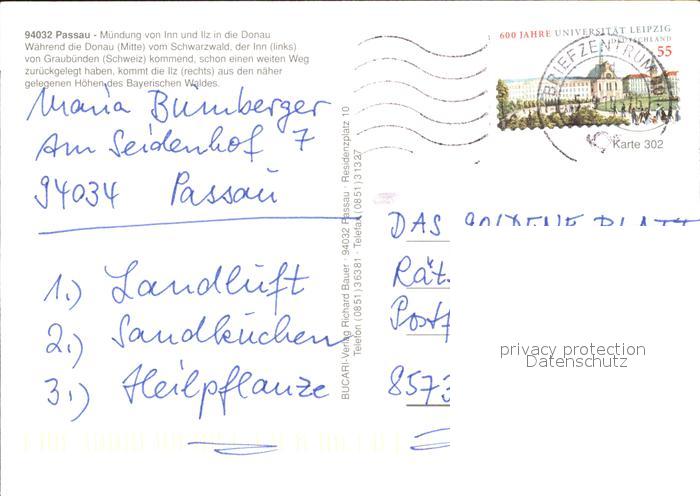 94032 Passau - Mündung von Inn und Ilz in die Donau
Während die Donau (Mitte) vom Schwarzwald, der Inn (links)
von Graubünden (Schweiz) kommend, schon einen weiten Weg
zurückgelegt haben, kommt die Ilz (rechts) aus den näher
gelegenen Höhen des Bayerischen Waldes.
Maria Bumberger
Am Seidenhof 7
94034 Passau
1.) Landluft
2.) Sandkuchen
3.) Heilpflanze
BUCARI-Verlag Richard Bauer · 94032 Passau · Residenzplatz 10
Telefon (0851) 36381 · Telefax (0851) 31327
600 JAHRE UNIVERSITÄT LEIPZIG
DEUTSCHLAND
55
BRIEFZENTRUM
Karte 302
DAS GOLDENE BLATT
Rät
Postf
8573
privacy protection
Datenschutz